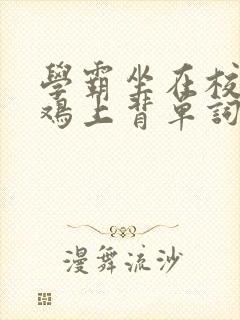 學霸坐在校
鴉上背單詞
漫舞流沙